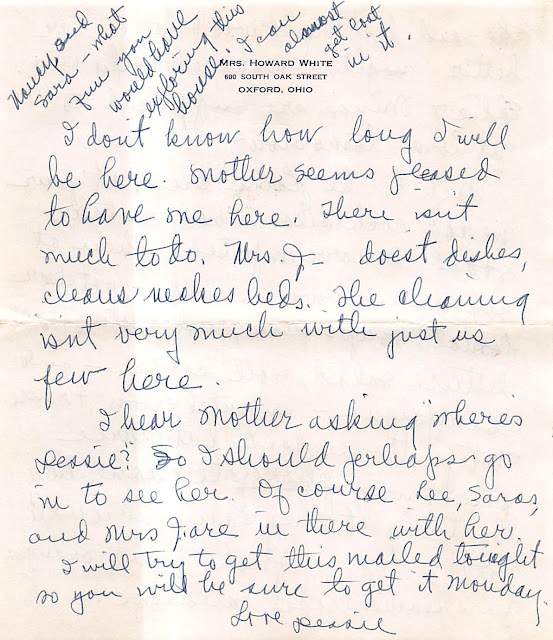 Nancy and
Sara - what
fun you
would have
exploring this
house. I can
almost
get lost
in it.
MRS. HOWARD WHITE
600 SOUTH OAK STREET
OXFORD, OHIO
I don't know how long I will
be here. Mother seems pleased
to have me here. There isn't
much to do. Mrs. J- doest dishes,
cleans makes beds. The cleaning
isn't very much with just us
few here.
I hear Mother asking "where's
Dessie?" So I should perhaps go
in to see her. Of course Lee, Sara,
and Mrs J. are in there with her.
I will try to get this mailed tonight
so you will be sure to get it Monday.
Love Dessie